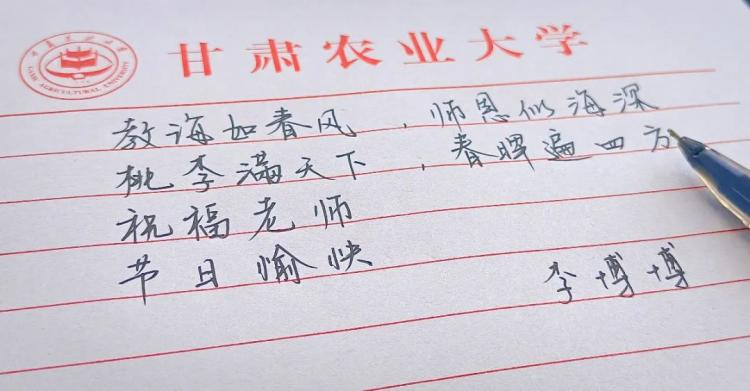 甘肃农业大学
GANSU AGRICULTURAL UNIVERSITY
教海如春风，师恩似海深
桃李满天下，春晖遍四方
祝福老师
节日愉快
李博博